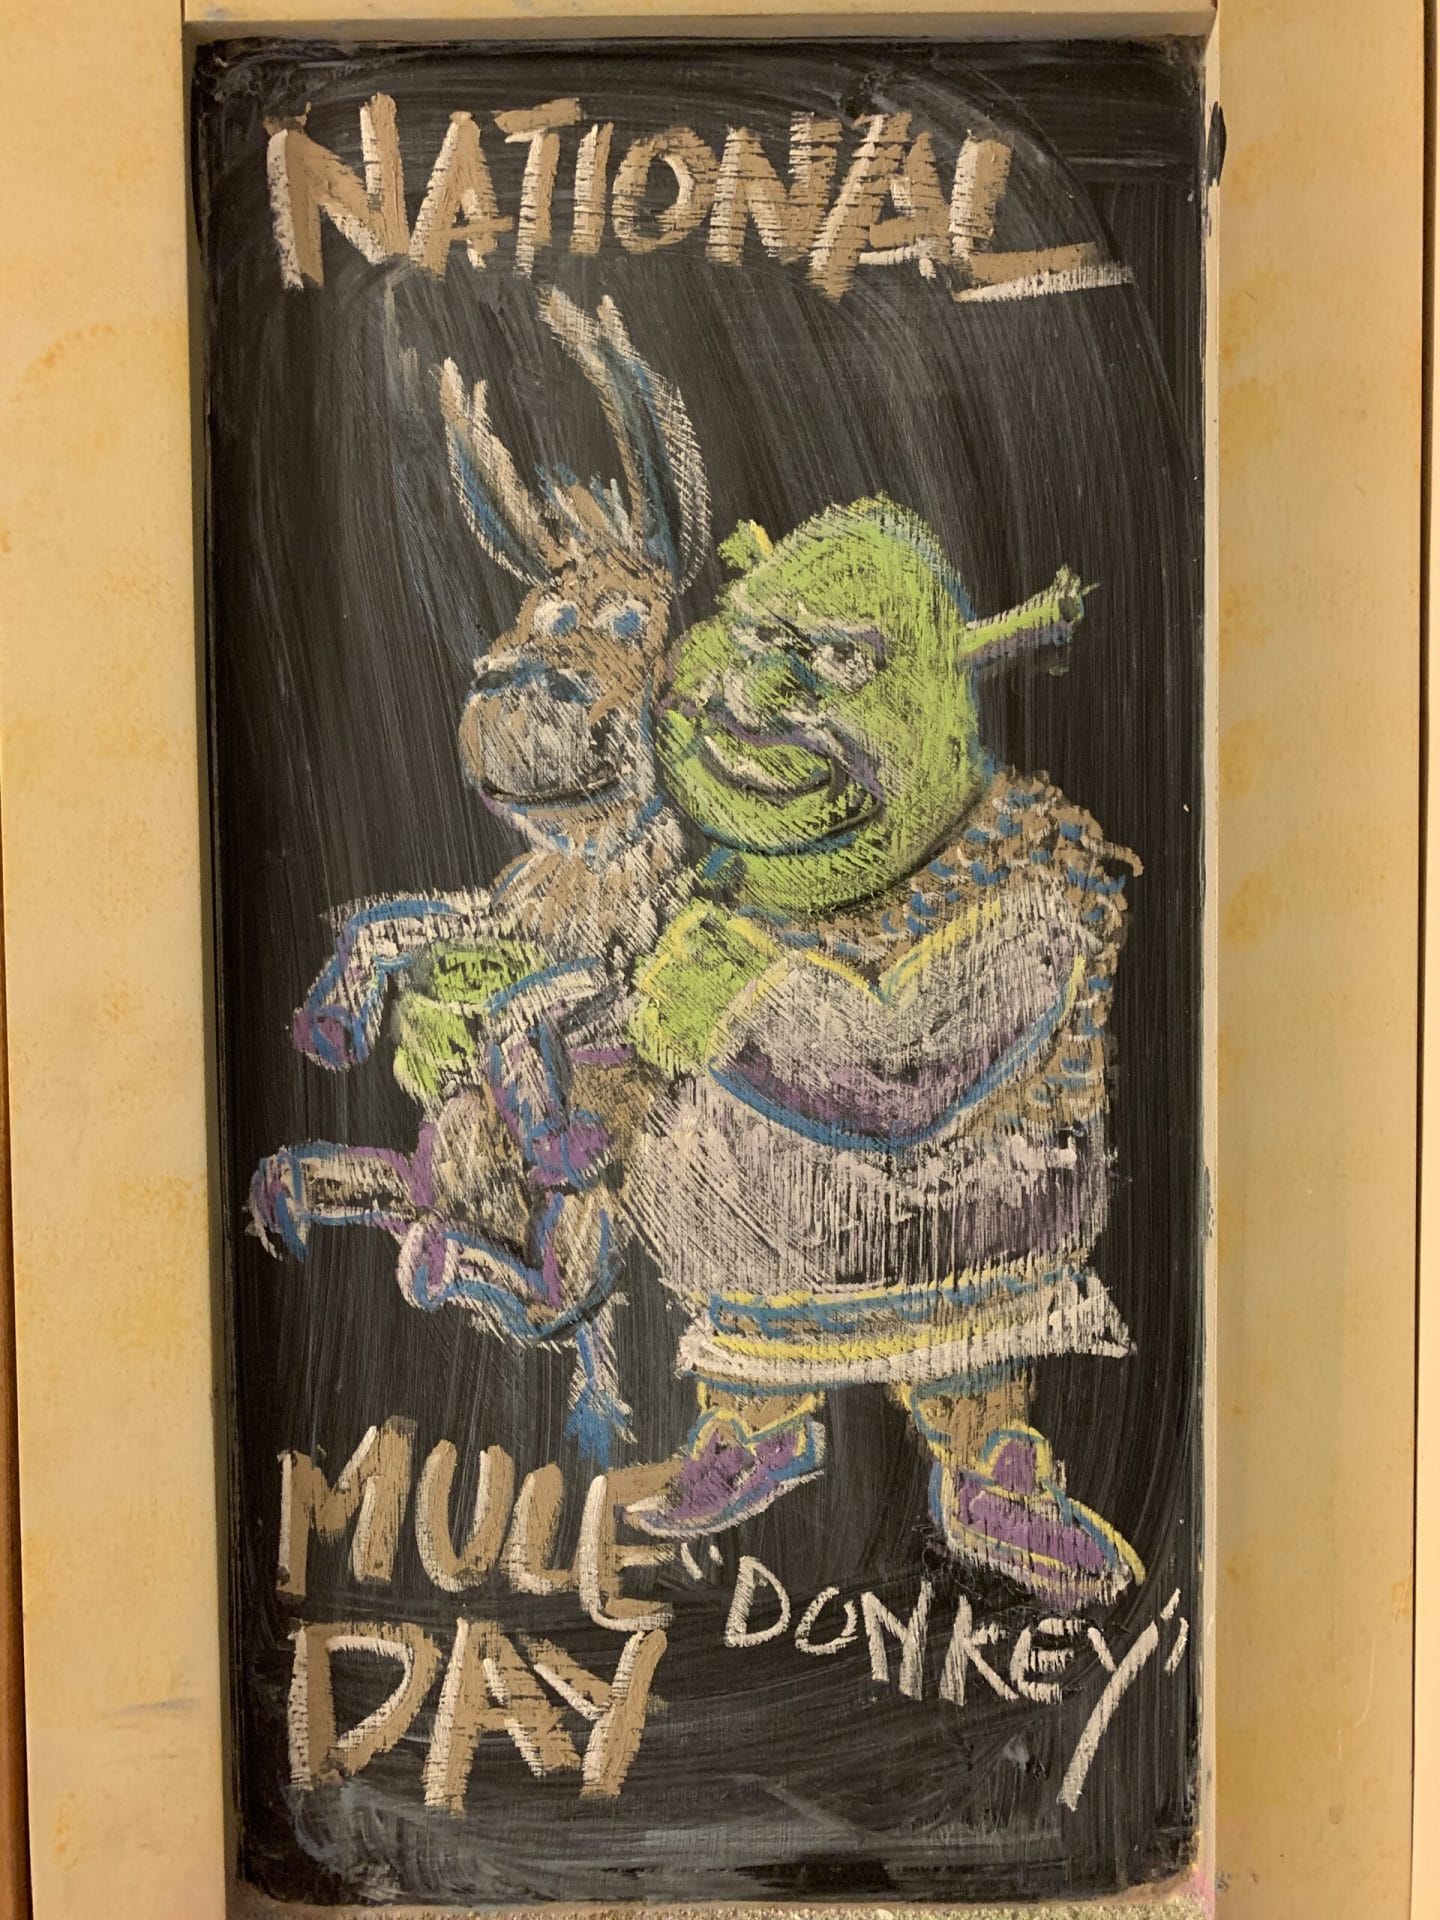 NATIONAL
MULE
"DONKEY"
DAY